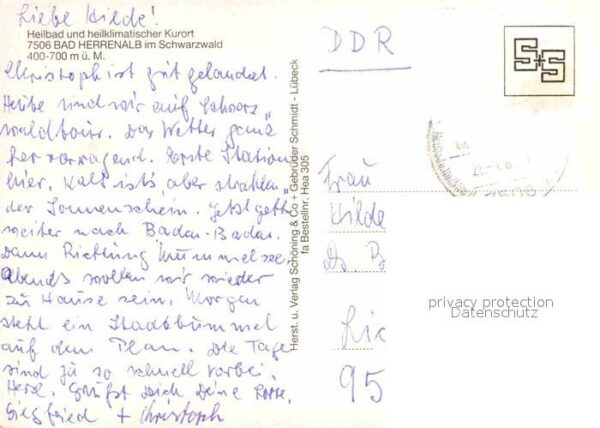 Liebe Hilde!
Heilbad und heilklimatischer Kurort
7506 BAD HERRENALB im Schwarzwald
400-700 m ü. M.
Christoph ist gut gelandet.
Heute sind wir auf Schwarz„
waldtour. Das Wetter ganz
hervorragend. Erste Station
hier. Kalt ists, aber strahlen„
der Sonnenschein. Jetzt geht's
weiter nach Baden-Baden.
Dann Richtung Mummelsee,
abends wollen wir wieder
zu Hause sein. Morgen
steht ein Stadtbummel
auf dem Plan. Die Tage
sind ja so schnell vorbei.
Herzl. Grüßt Dich Deine Lotte,
Siegfried + Christoph
Herst. u. Verlag Schöning & Co + Gebrüder Schmidt - Lübeck
fa Bestellnr. Hea 305
DDR
S+S
Frau
Hilde
95
privacy protection
Datenschutz